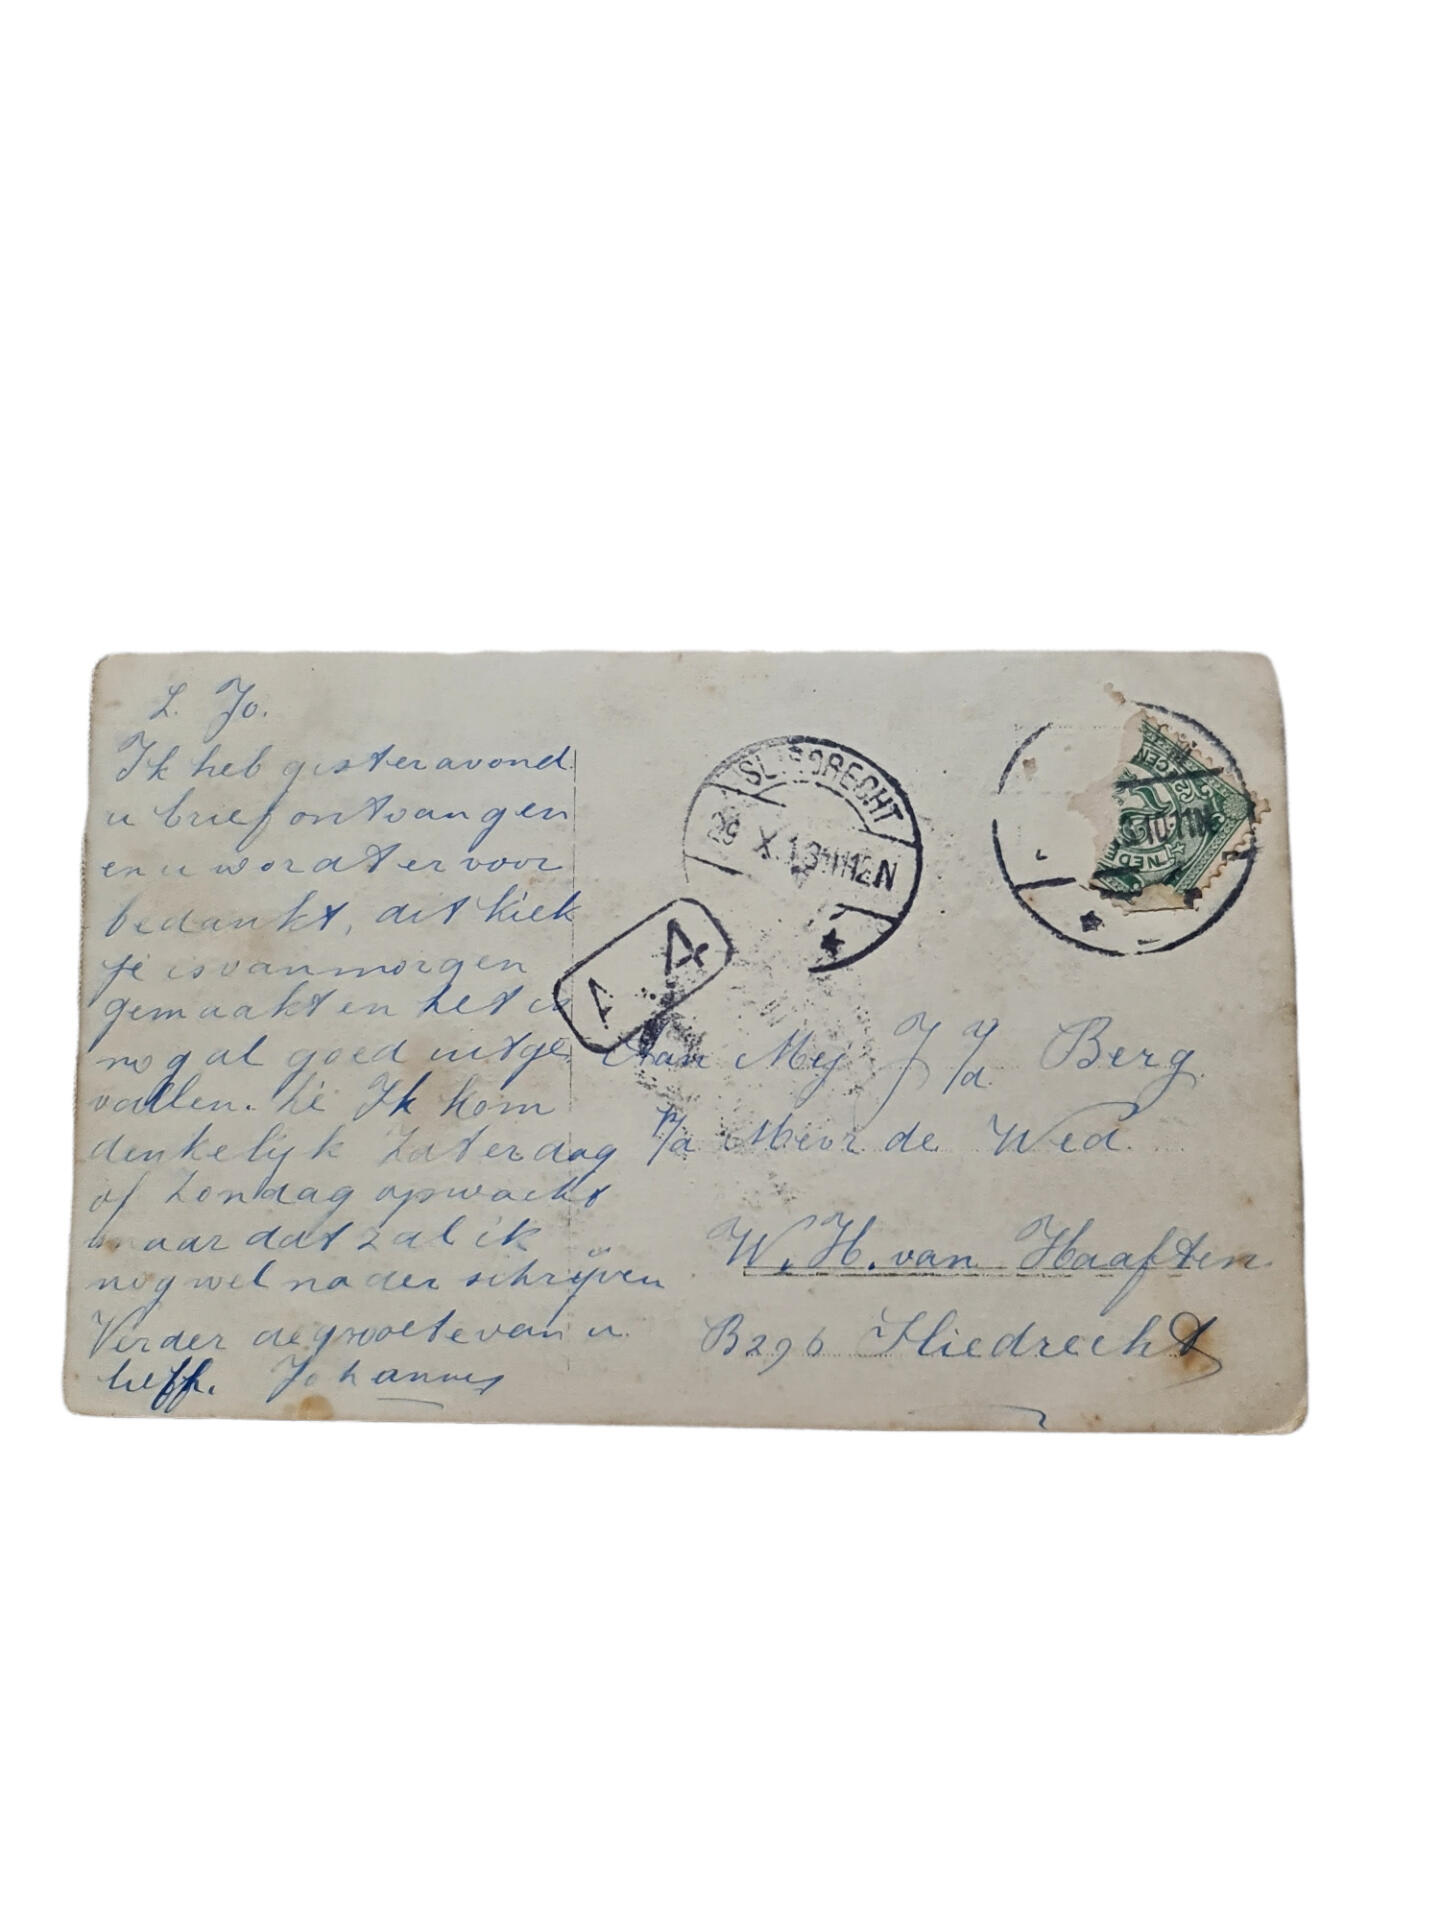 L. Jo.
Ik heb gisteravond
u brief ontvangen
en u wordt er voor
bedankt, dit kiek
je is vanmorgen
gemaakt en het is
nog al goed uitge
vallen. hé Ik kom
denkelijk Zaterdag
of Zondag opwacht
maar dat zal ik
nog wel nader schrijven
Verder de groete van u
lieff. Johannes
SLIEDRECHT
29 X.13 11-12N
A 4
10.11N
NED
CEN
Aan Mej J v/d Berg.
p/a Mevr de Wed.
W. H. van Haaften
B296 Sliedrecht